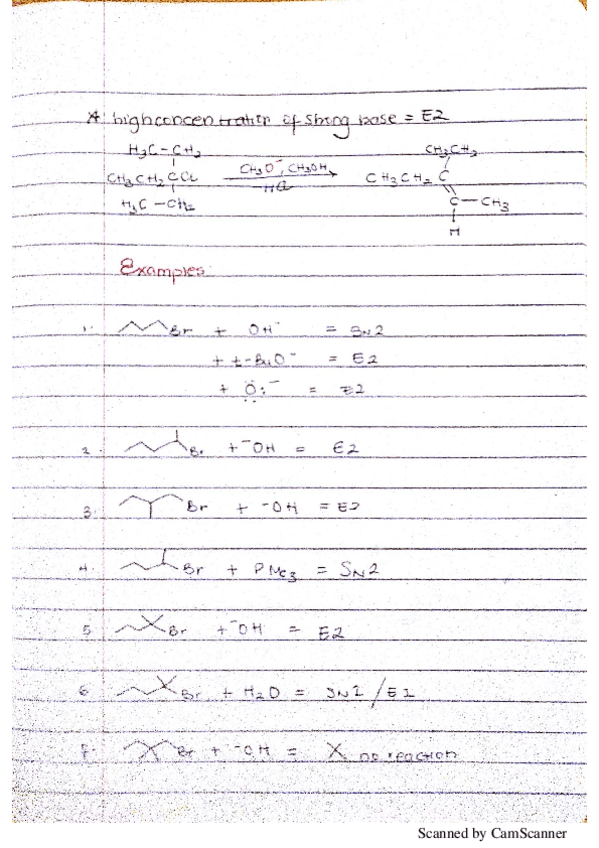 * high concentration of strong base = E2
H3C-CH2
CH3CH2CCl
H3C-CH2
CH3O-, CH3OH
HCl
CH2CH3
CH3CH2 C
C-CH3
H
Examples:
1. Br + OH- = SN2
+ t-BuO- = E2
+ Ö:- = E2
2. Br + -OH = E2
3. Br + -OH = E2
4. Br + PMe3 = SN2
5. Br + -OH = E2
6. Br + H2O = SN1/E1
7. Br + -OH = X no reaction
Scanned by CamScanner